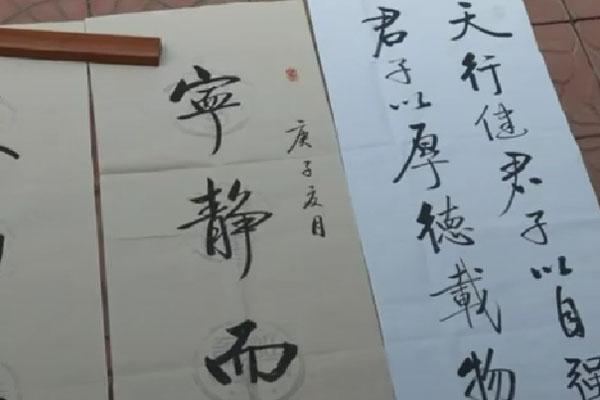 天行健君子以自强
君子以厚德載物
庚子夏月
寧静而